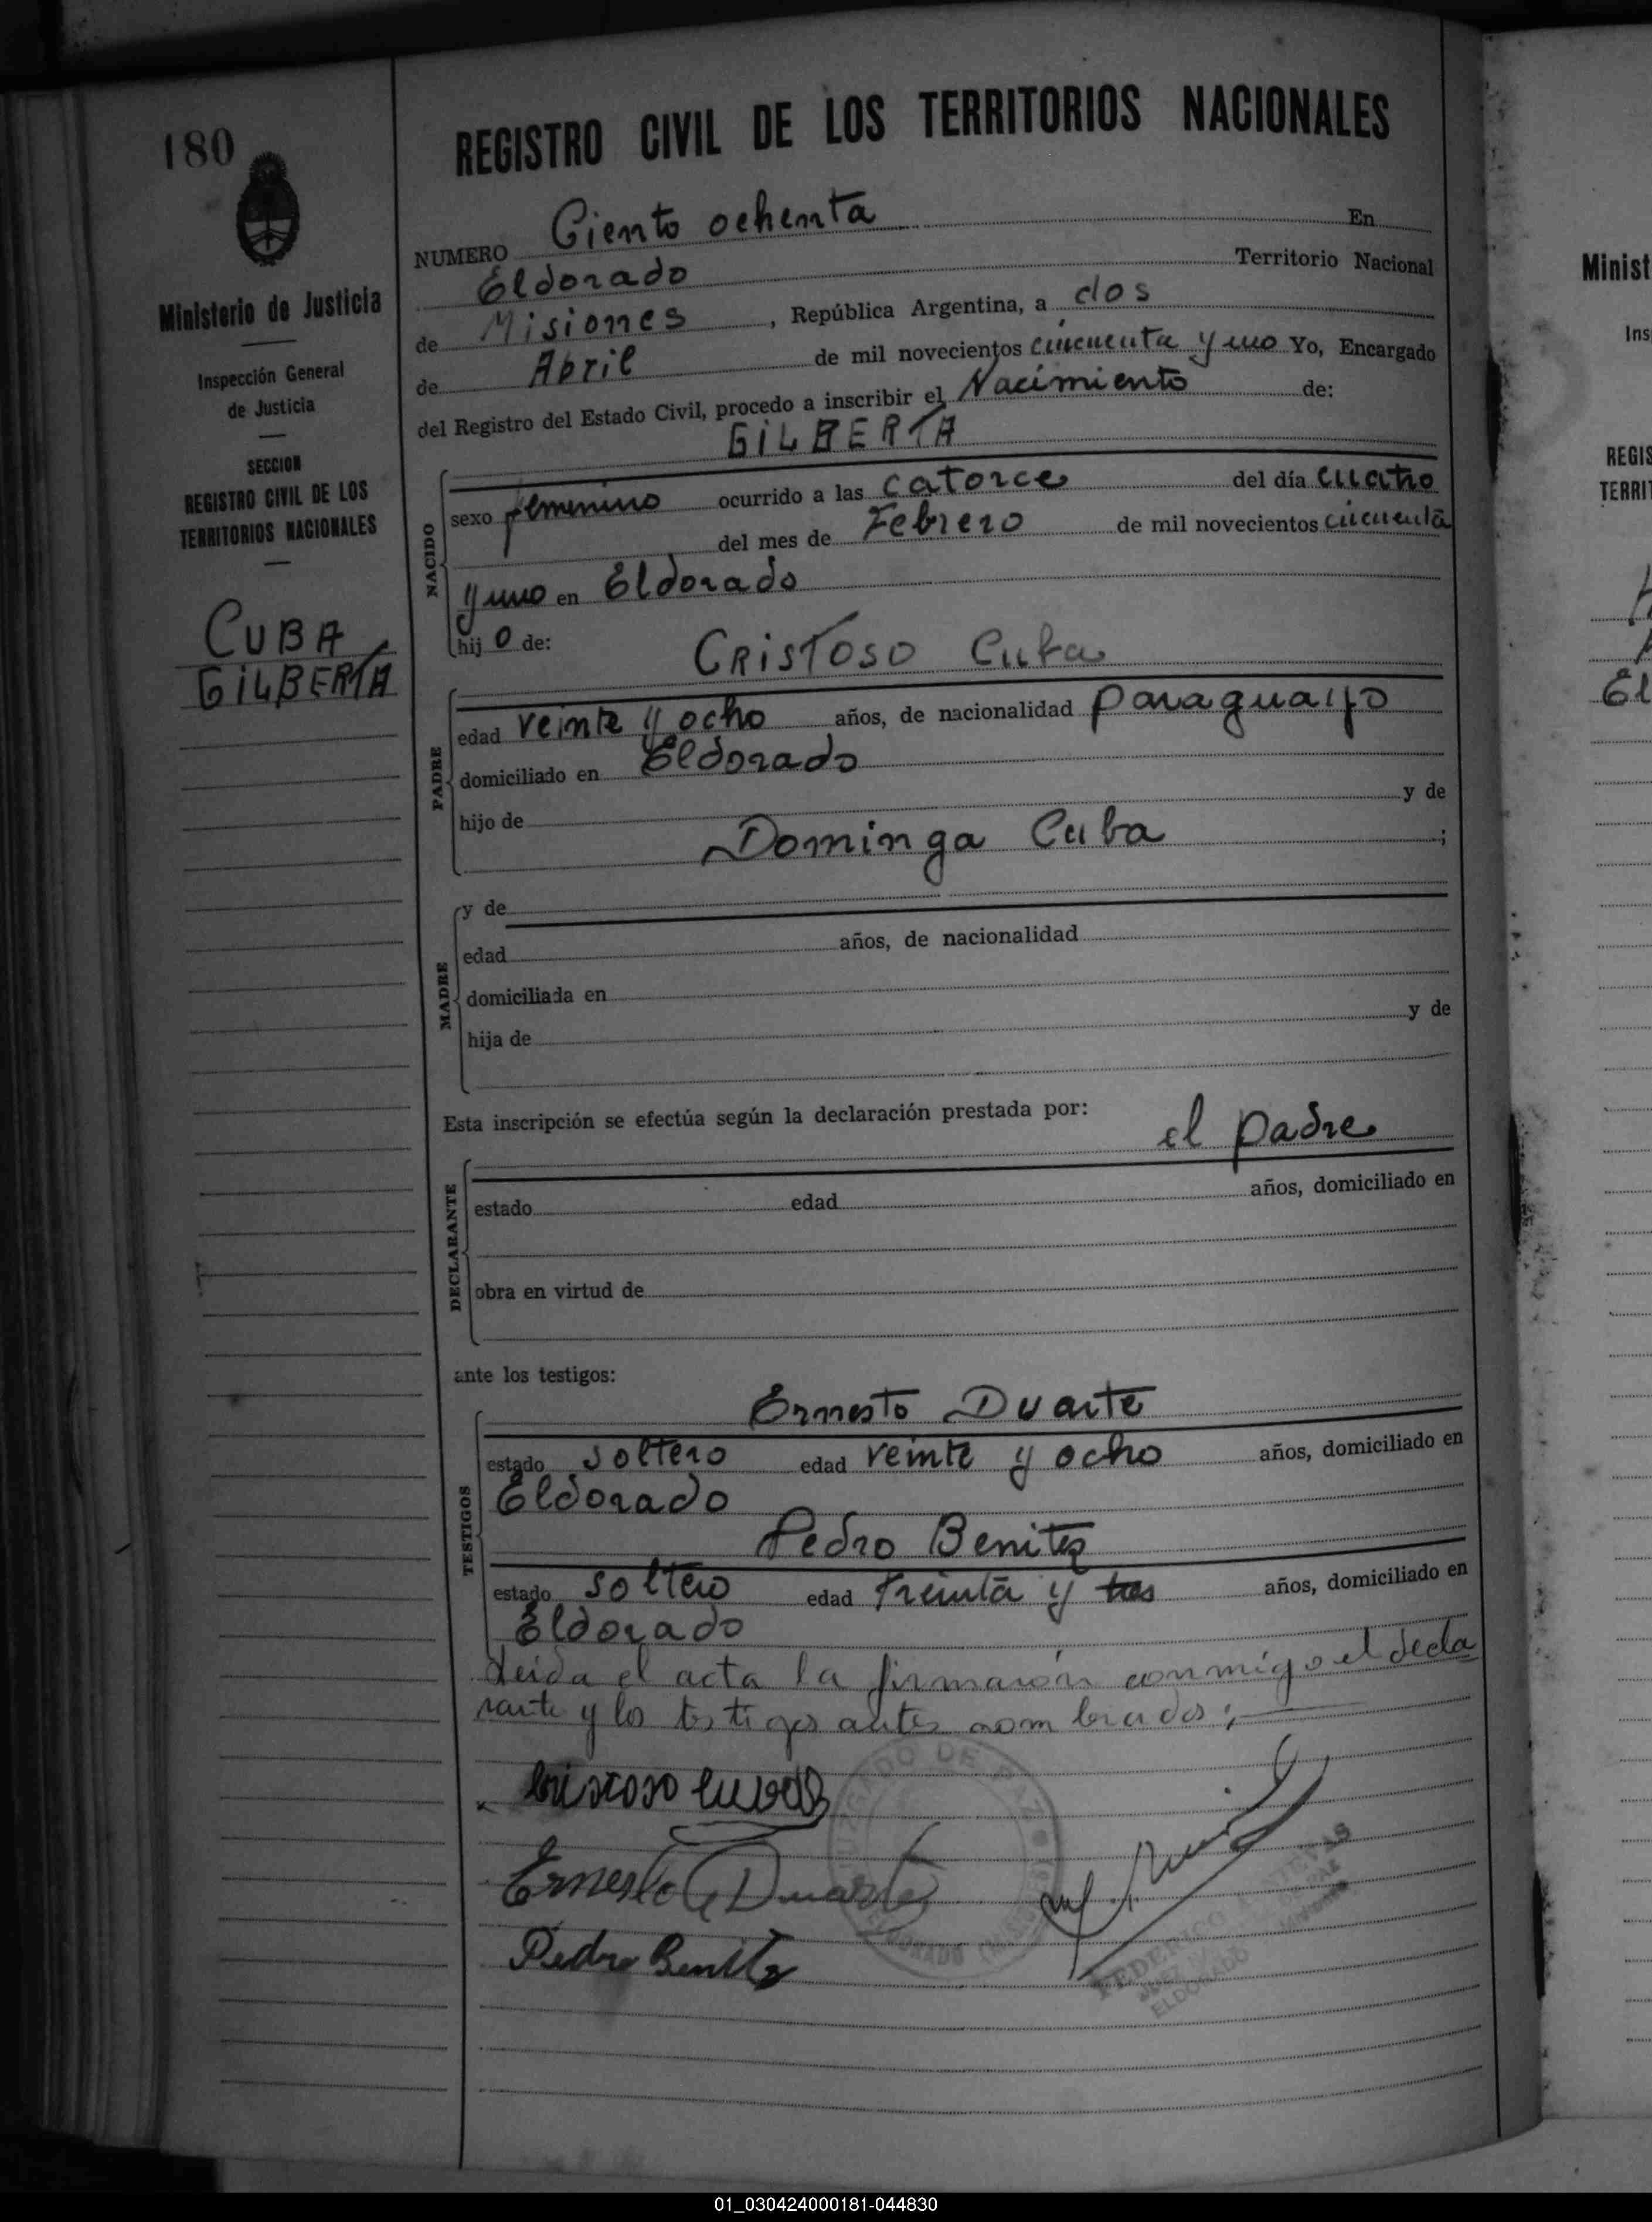 180
REGISTRO CIVIL DE LOS TERRITORIOS NACIONALES
NUMERO Ciento ochenta En
Eldorado Territorio Nacional
de Misiones, República Argentina, a dos
de Abril de mil novecientos cincuenta y uno Yo, Encargado
del Registro del Estado Civil, procedo a inscribir el Nacimiento de:
GILBERTA
NACIDO
sexo femenino ocurrido a las catorce del día cuatro
del mes de Febrero de mil novecientos cincuenta
y uno en Eldorado
hij o de:
Ministerio de Justicia
Inspección General
de Justicia
SECCION
REGISTRO CIVIL DE LOS
TERRITORIOS NACIONALES
CUBA
GILBERTA
CRISTOSO Cuba
PADRE
edad veinte y ocho años, de nacionalidad paraguayo
domiciliado en Eldorado
hijo de y de
Dominga Cuba ;
MADRE
y de
edad años, de nacionalidad
domiciliada en
hija de y de
Esta inscripción se efectúa según la declaración prestada por:
el padre
DECLARANTE
estado edad años, domiciliado en
obra en virtud de
ante los testigos:
TESTIGOS
Ernesto Duarte
estado soltero edad veinte y ocho años, domiciliado en
Eldorado
Pedro Benitez
estado soltero edad treinta y tres años, domiciliado en
Eldorado
Leida el acta la firmaron conmigo el decla
rante y los testigos antes nombrados;
Cristoso Cuba
Ernesto Duarte
Pedro Benitez
JUZGADO DE PAZ
ELDORADO
FEDERICO
JUEZ
ELDORADO
Minist
Ins
REGIS
TERRIT
El
01_030424000181-044830